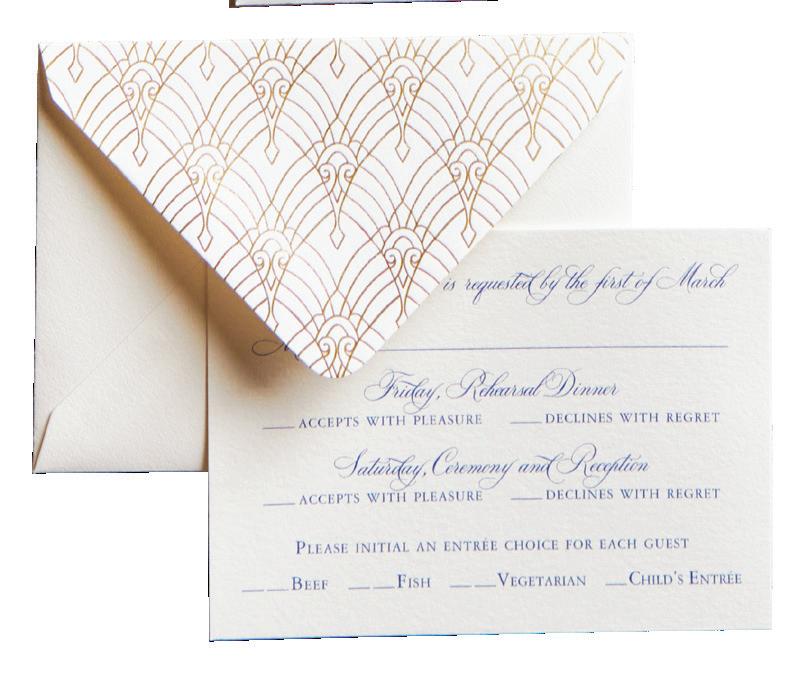 is requested by the first of March
M
Friday, Rehearsal Dinner
___ACCEPTS WITH PLEASURE ___DECLINES WITH REGRET
Saturday, Ceremony and Reception
___ACCEPTS WITH PLEASURE ___DECLINES WITH REGRET
PLEASE INITIAL AN ENTRÉE CHOICE FOR EACH GUEST
__ __BEEF __ __FISH __ __VEGETARIAN __CHILD'S ENTRÉE